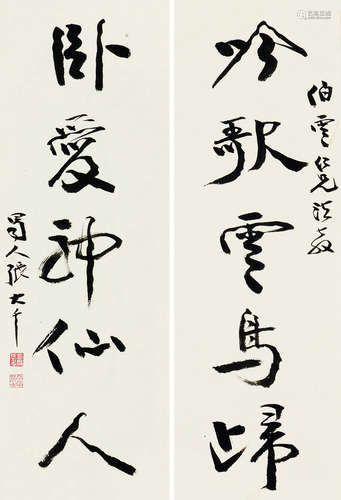 伯雲仁兄法教
吟歌雲鳥歸
卧愛神仙人
蜀人張大千